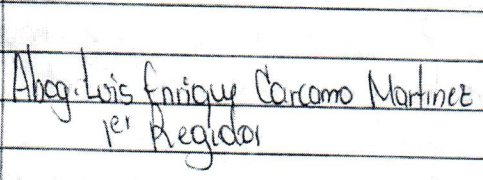 Abog. Luis Enrique Carcamo Martinez
1er Regidor